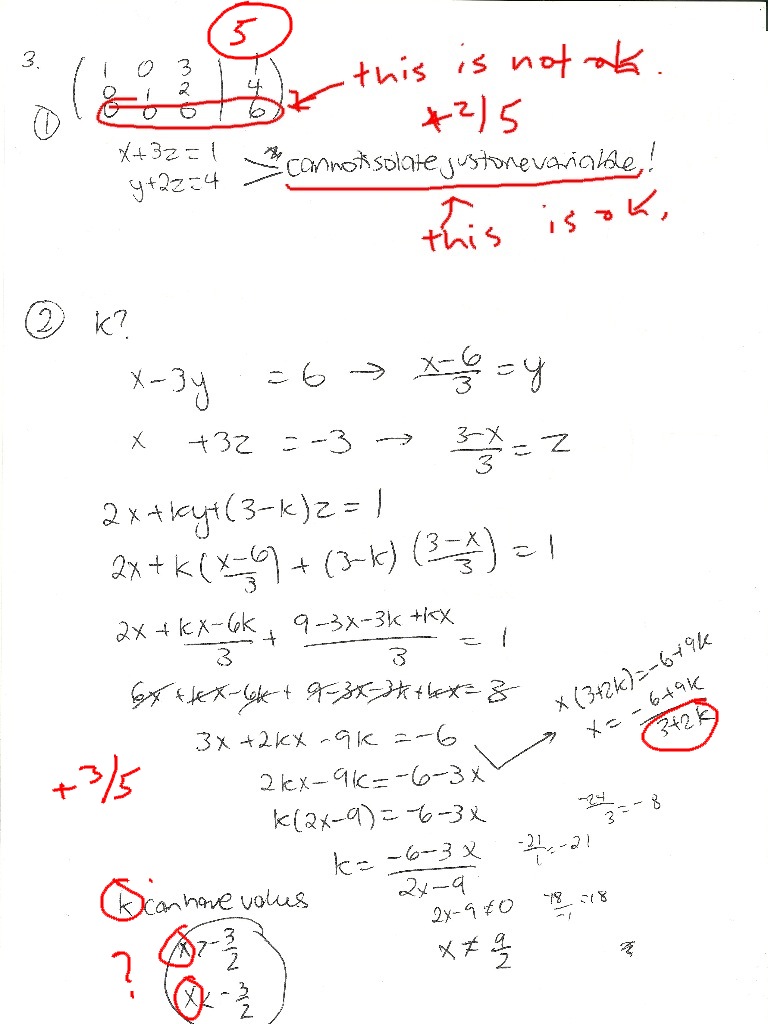 5
3.
1 0 3 | 1
0 1 2 | 4
0 0 0 | 6
this is not ok.
+2/5
①
x+3z=1
y+2z=4
cannot isolate just one variable!
this is ok.
② k?
x-3y = 6 → x-6/3 = y
x +3z = -3 → 3-x/3 = z
2x+ky+(3-k)z=1
2x+k(x-6/3) + (3-k)(3-x/3) = 1
2x + kx-6k/3 + 9-3x-3k+kx/3 = 1
6x+kx-6k+9-3x-3k+kx=3
3x+2kx-9k=-6
x(3+2k)=-6+9k
x= -6+9k/3+2k
2kx-9k=-6-3x
+3/5
k(2x-9)=-6-3x
-24/3=-8
k= -6-3x/2x-9
-21/1=-21
k can have values
2x-9≠0
-18/-1=18
x>-3/2
x≠9/2
?
x<-3/2